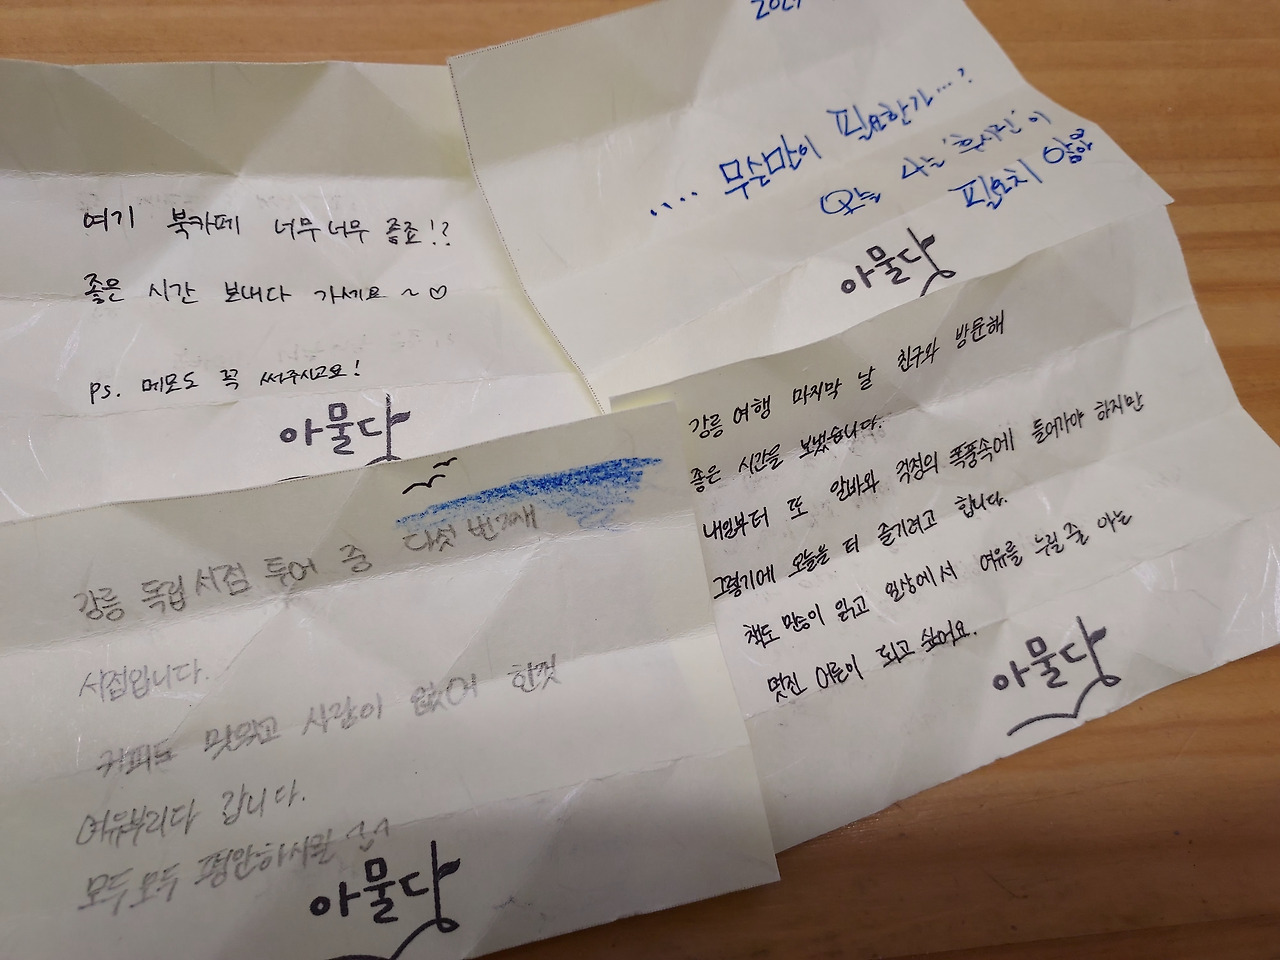 여기 북카페 너무너무 좋죠!?
좋은 시간 보내다 가세요~♡
ps. 메모도 꼭 써주시고요!
아물다
.... 무슨말이 필요한가...?
오늘 나는 이
필요치 않음
아물다
강릉 독립서점 투어 중 다섯 번째
서점입니다.
커피도 맛있고 사람이 없어 한껏
여유부리다 갑니다.
모두모두 평안하시길 ^^
아물다
강릉여행 마지막 날 친구와 방문해
좋은 시간을 보냈습니다.
내일부터 또 알바와 걱정의 폭풍속에 들어가야 하지만
그렇기에 오늘을 더 즐기려고 합니다.
책도 많이 읽고 일상에서 여유를 누릴줄 아는
멋진 어른이 되고 싶어요.
아물다